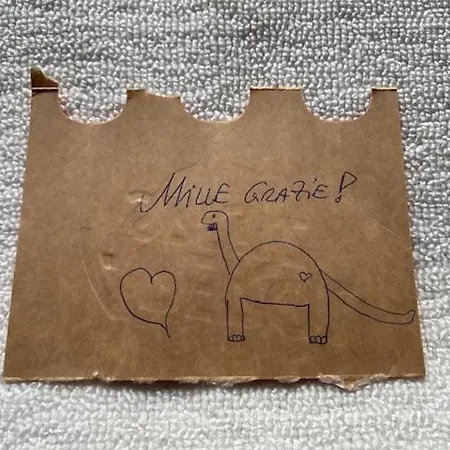 Mille GRAZie!